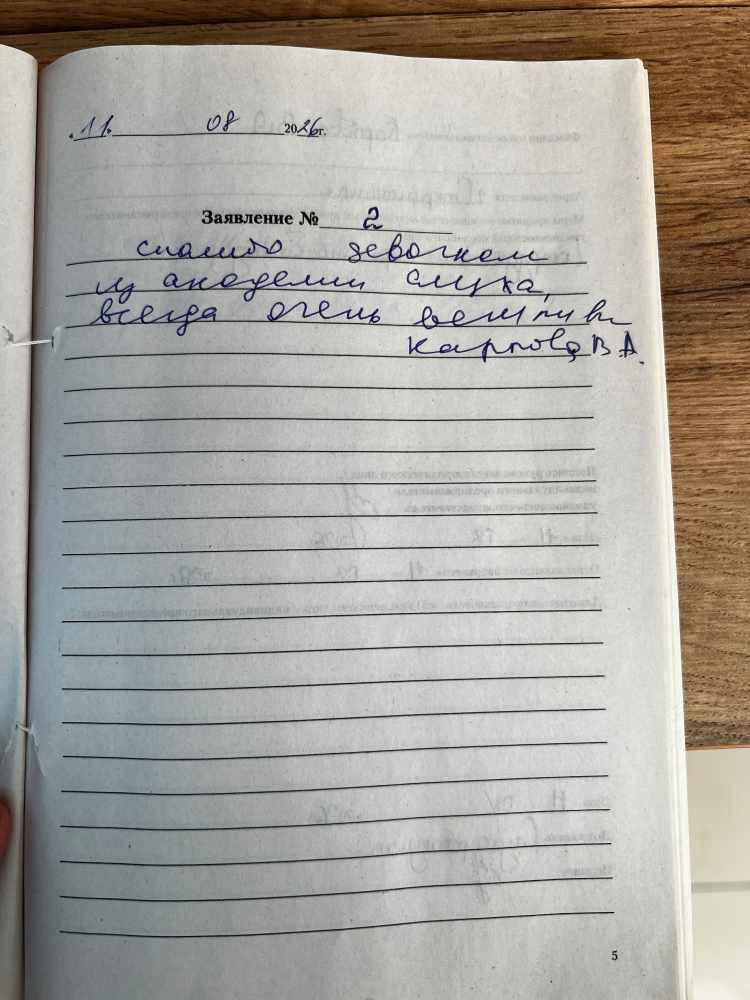 11. 08 2026г.
Заявление № 2
спасибо девочкам
из академии слуха,
всегда очень вежливы
Карпова В.А.
5